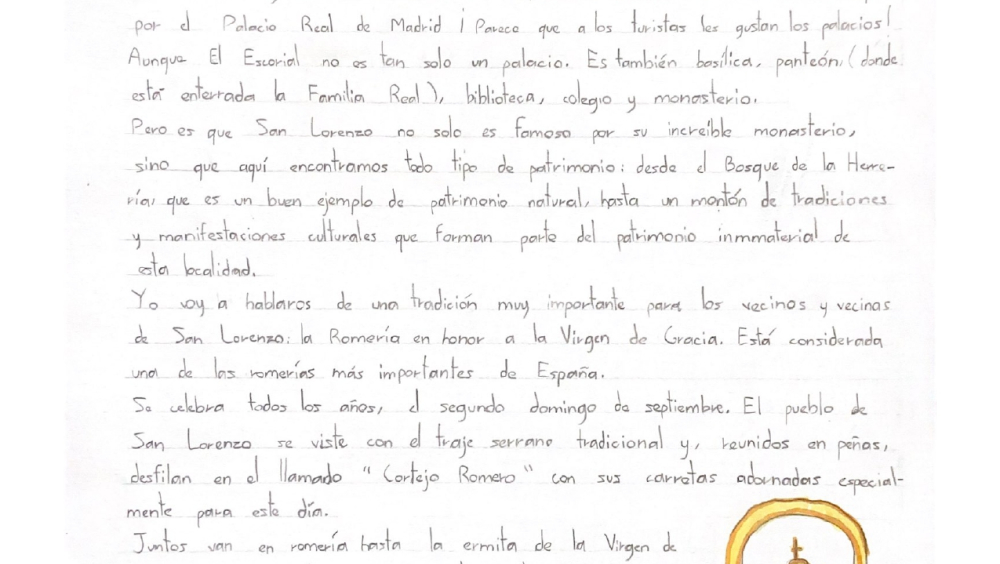 por el Palacio Real de Madrid ¡Parece que a los turistas les gustan los palacios!
Aunque El Escorial no es tan solo un palacio. Es también basílica, panteón, (donde
está enterrada la Familia Real), biblioteca, colegio y monasterio.
Pero es que San Lorenzo no solo es famoso por su increíble monasterio,
sino que aquí encontramos todo tipo de patrimonio: desde el Bosque de la Herre-
ría, que es un buen ejemplo de patrimonio natural, hasta un montón de tradiciones
y manifestaciones culturales que forman parte del patrimonio inmmaterial de
esta localidad.
Yo voy a hablaros de una tradición muy importante para los vecinos y vecinas
de San Lorenzo: la Romería en honor a la Virgen de Gracia. Está considerada
una de las romerías más importantes de España.
Se celebra todos los años, el segundo domingo de septiembre. El pueblo de
San Lorenzo se viste con el traje serrano tradicional y, reunidos en peñas,
desfilan en el llamado "Cortejo Romero" con sus carretas adornadas especial-
mente para este día.
Juntos van en romería hasta la ermita de la Virgen de